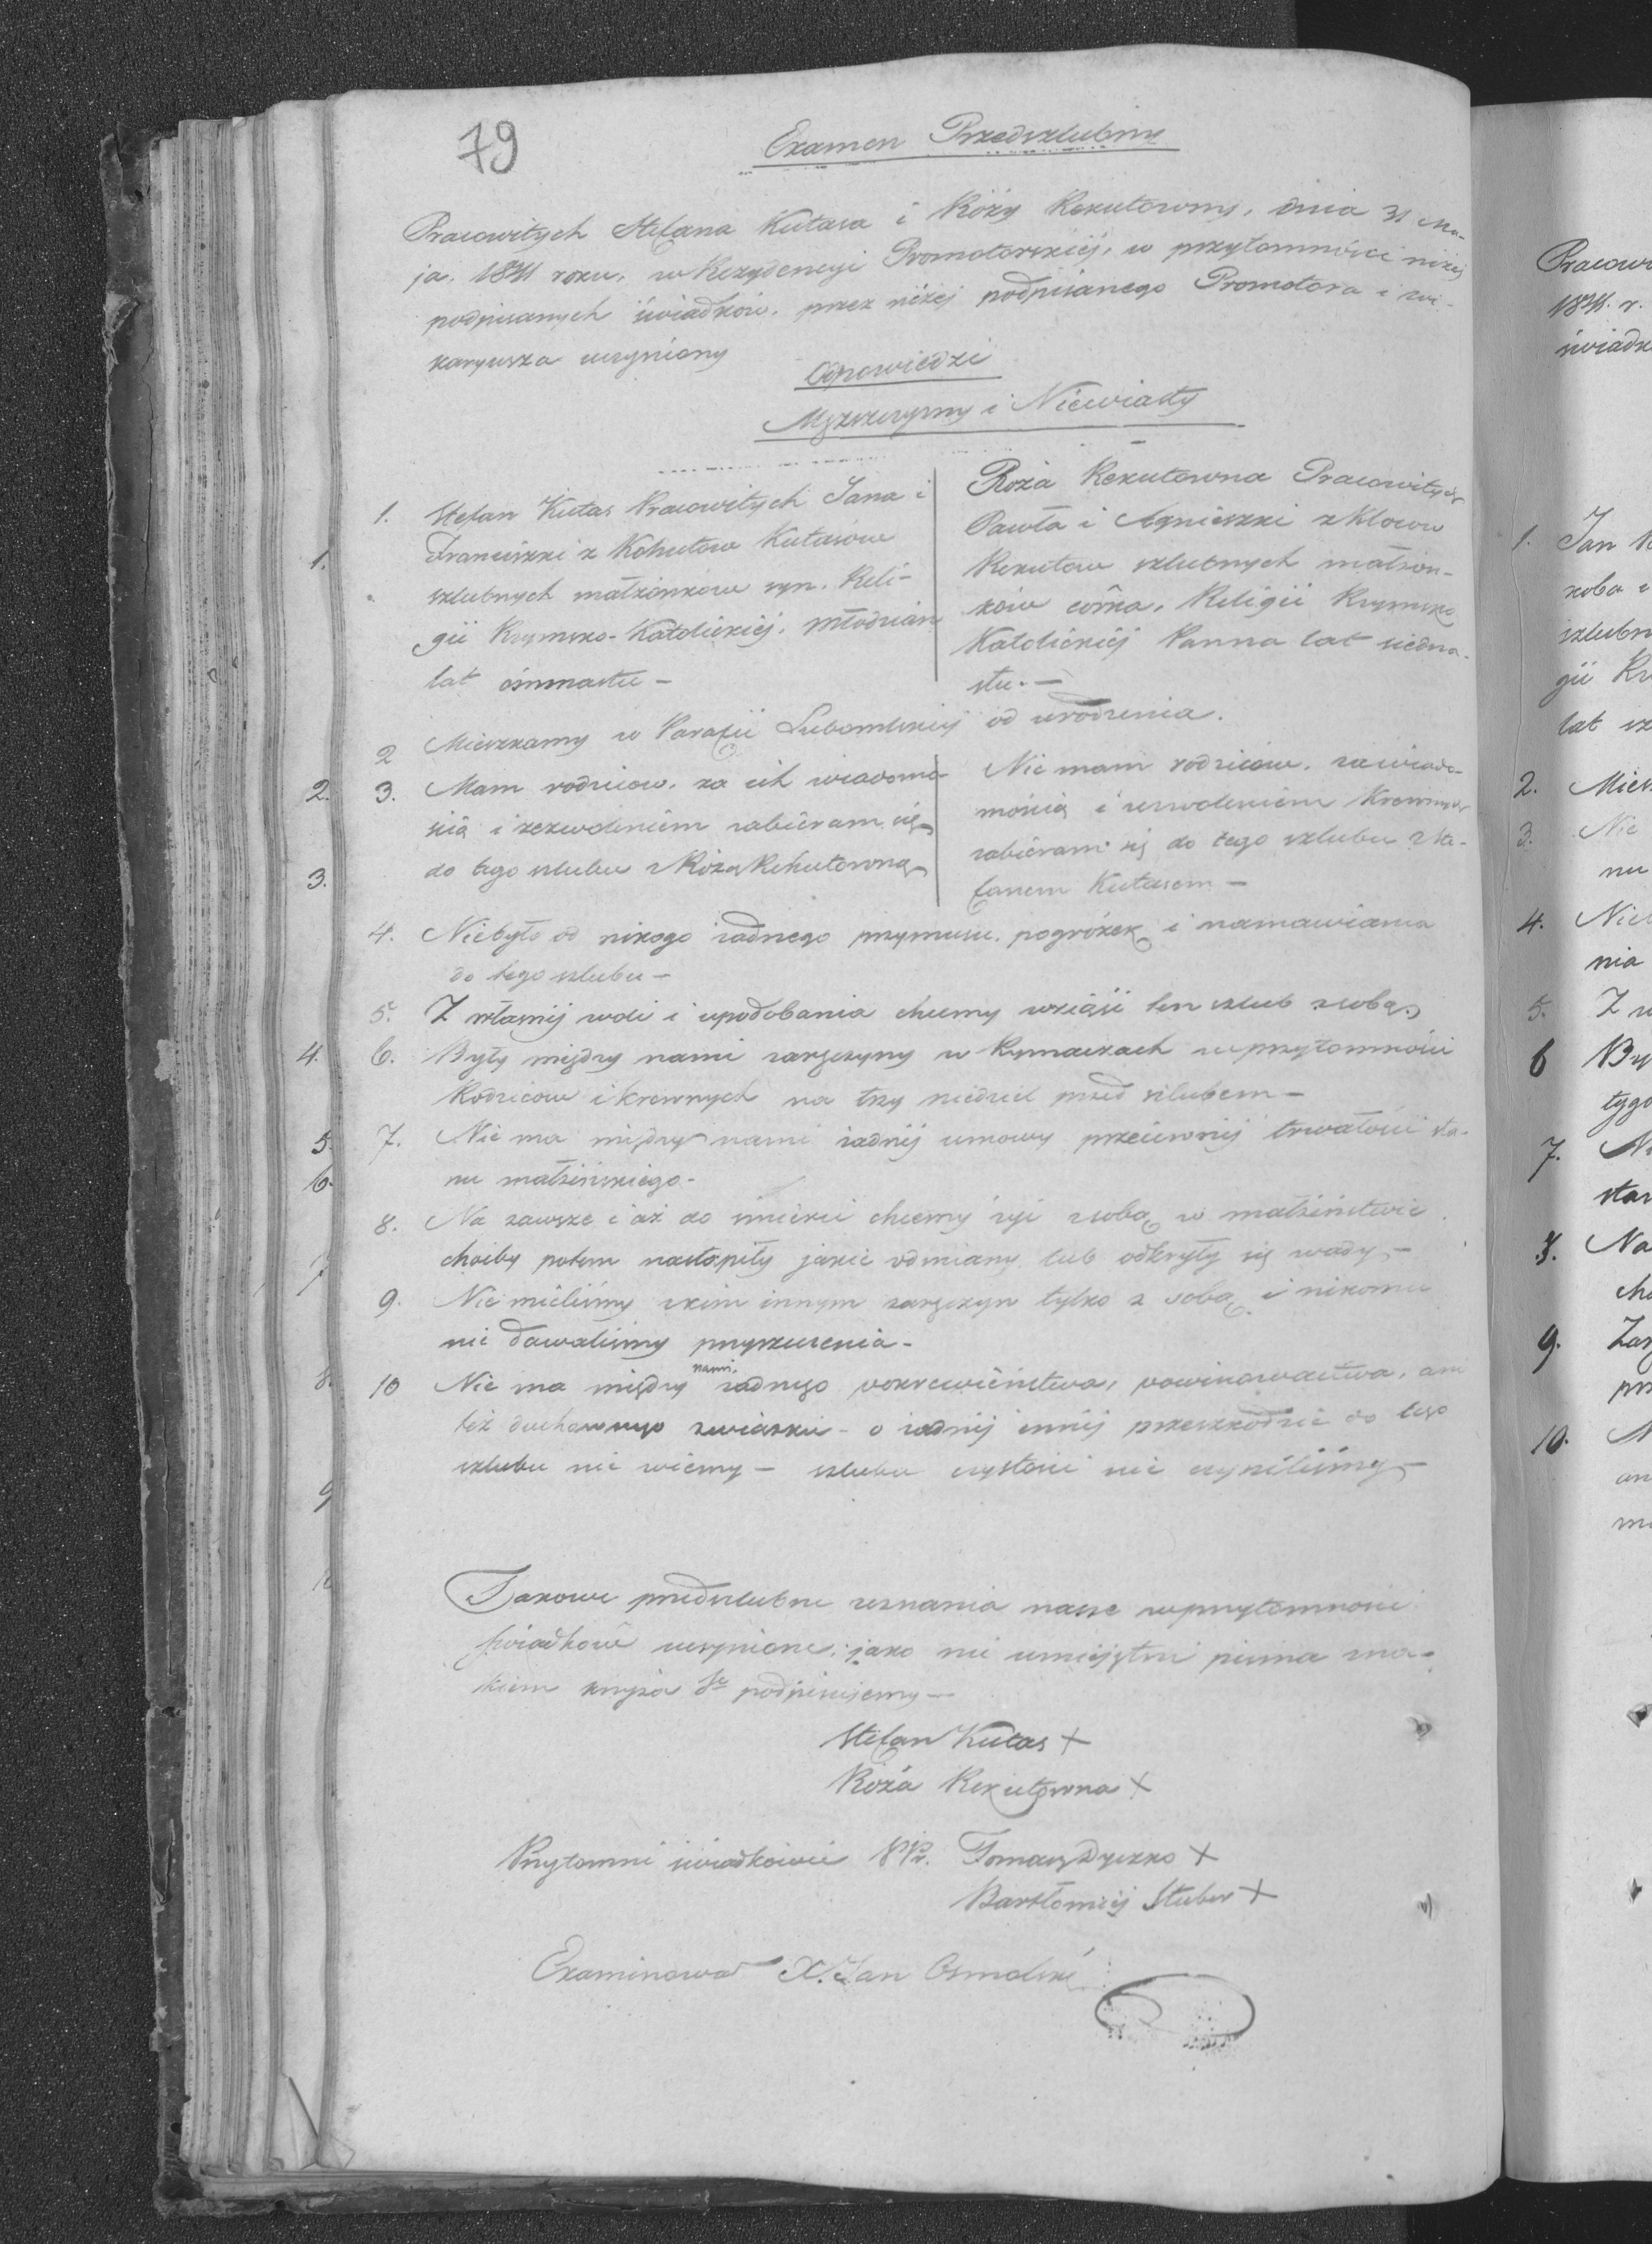 79
Examen Przedszlubny
Pracowitych Stefana Kutasa i Róży Rekutowny, dnia 31 Ma-
ja, 1841 roku, w Rezydencyi Promotorskiéj, w przytomności niżej
podpisanych świadków, przez niżej podpisanego Promotora i wi-
karyusza uczyniony
Odpowiedzi
Męszczyzny i Niéwiasty
1. Stefan Kutas Pracowitych Jana i
Franciszki z Kohutow Kutasow
szlubnych małżonkow syn. Reli-
gii Rzymsko-Katolickiéj, młodzian
lat ośmnastu -
Róża Rekutowna Pracowitych
Pawła i Agnieszki z Klocow
Rekutow szlubnych małżon-
ków córka, Religii Rzymsko
Katolickiéj Panna lat siedna-
stu. -
2 Mieszkamy w Parafii Lubomlskiéj od urodzenia.
3. Mam rodzicow, za ich wiadomo-
ścią i zezwoleniem zabiéram się
do tego szlubu z Różą Rekutowną
Nie mam rodzicow, za wiado-
mością i zezwoleniem Krewnych
zabiéram się do tego szlubu z Ste-
fanem Kutasem -
4. Niebyło od nikogo żadnego przymusu, pogróżek i namawiania
do tego szlubu -
5. Z własnéj woli i upodobania chcemy wziąść ten szlub z sobą.
6. Były między nami zaręczyny w Rymaczach w przytomności
Rodzicow i krewnych na trzy niedziel przed szlubem -
7. Nie ma między nami żadnéj umowy przeciwnéj trwałości sta-
nu małżeńskiego -
8. Na zawsze i aż do śmierci chcemy żyć z sobą w małżeństwie
choćby potem nastąpiły jakie odmiany lub odkryły się wady -
9. Nie mieliśmy z kim innym zaręczyn tylko z sobą i nikomu
nie dawaliśmy przyrzeczenia -
10 Nie ma między nami żadnego pokrewieństwa, powinowactwa, ani
też duchownego związku - o żadnéj innéj przeszkodzie do tego
szlubu nie wiemy - szlubu czystości nie czyniliśmy -
Takowe przedszlubne zeznania nasze w przytomności
świadków uczynione, jako nie umiejętni pisma zna-
kiem krzyża Sgo podpisujemy -
Stefan Kutas +
Róża Rekutowna +
Przytomni świadkowie PP. Tomasz Dyczko +
Bartłomiéj Stuber +
Examinował X. Jan Osmolski
1.
2.
3.
4.
5.
6.
7
8.
9
10
Pracowi
1841. r.
świadk
1. Jan K
koba i
szlubn
gii Rz
lat sz
2. Miesz
3. Nie
nu
4. Nieb
nia
5. Z w
6 By
tygo
7. Ni
stan
8. Na
cho
9. Zarę
prz
10. N
an